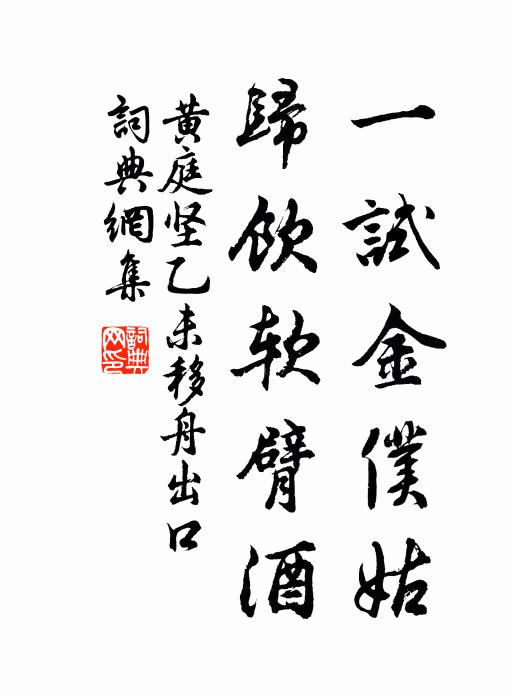 一試金僕姑
歸飲软臂酒
黄庭坚乙未移舟出口
詞典網集
詞典網印